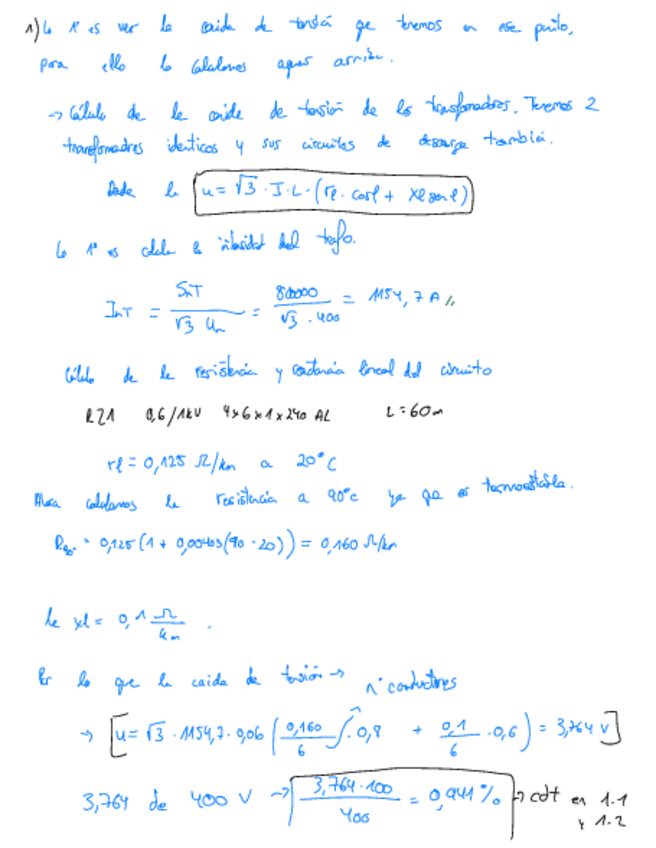 1) Lo 1º es ver la caida de tensión que tenemos en ese punto,
para ello lo calculamos aguas arriba.
→ Cálculo de la caida de tensión de los transformadores. Tenemos 2
transformadores identicos y sus circuitos de descarga también.
Dada la u = √3 · I · L · (rl · cosφ + Xl senφ)
Lo 1º es calcular la intensidad del trafo.
InT = SnT / (√3 Un) = 800000 / (√3 · 400) = 1154,7 A //
Cálculo de la resistencia y reactancia lineal del circuito
RZ1 0,6/1kV 4x6x1x240 AL L = 60m
rl = 0,125 Ω/km a 20°C
Ahora calculamos la resistencia a 90°c ya que es termoestable.
R90° = 0,125 (1 + 0,00403 (90 - 20)) = 0,160 Ω/km
la xl = 0,1 Ω/km .
Por lo que la caida de tensión → nº conductores
→ [u = √3 · 1154,7 · 0,06 (0,160/6 · 0,8 + 0,1/6 · 0,6) = 3,764 V]
3,764 de 400 V → 3,764 · 100 / 400 = 0,941 % → cdt en 1.1
y 1.2